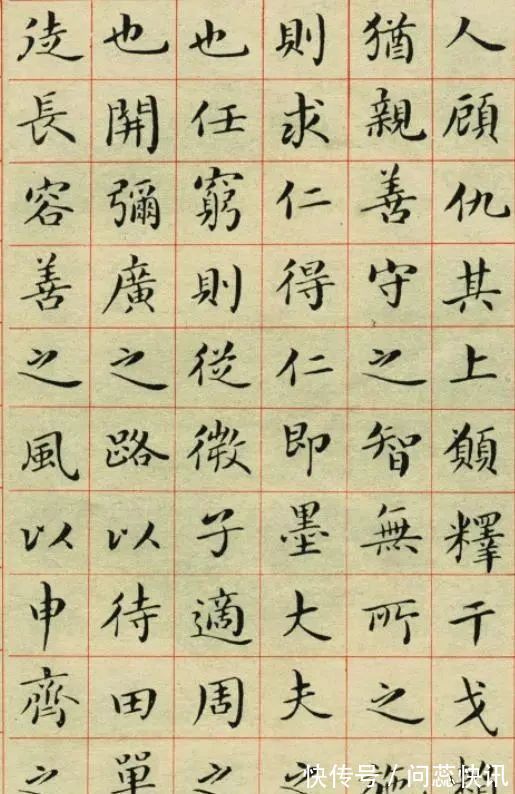 人顧仇其上願釋干戈
猶親善守之智無所之
則求仁得仁即墨大夫之
也任窮則從微子適周之
也開彌廣之路以待田單
徒長容善之風以申齊之
快传号/问蕊快讯